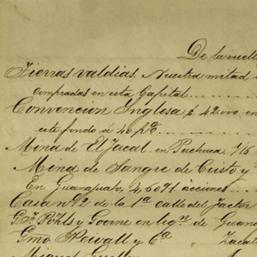 De la vuelta
Tierras valdias. Nuestra mitad
compradas en esta Capital
Convencion Inglesa $ 42.000 en
este fondo á 40 p%
Mina de El Jacal en Pachuca 7/5
Mina de Sangre de Cristo y
En Guanajuato, 4 acciones
Casa Nº 2 de la 1ª calle del Factor
en liqn. de Guana
Gmo Newall y Cª Zacate
Miguel